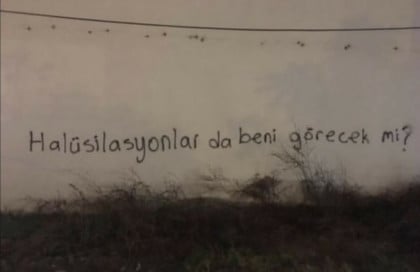 Halüsilasyonlar da beni görecek mi?